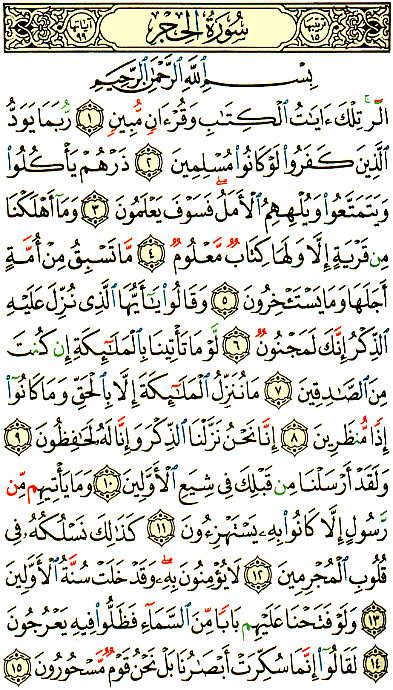 ترتيبها ١٥ سُورَةُ الْحِجْرِ آياتها ٩٩
بِسْمِ ٱللَّهِ ٱلرَّحْمَٰنِ ٱلرَّحِيمِ
الٓرۚ تِلْكَ ءَايَٰتُ ٱلْكِتَٰبِ وَقُرْءَانٍ مُّبِينٍ ١ رُّبَمَا يَوَدُّ
ٱلَّذِينَ كَفَرُوا۟ لَوْ كَانُوا۟ مُسْلِمِينَ ٢ ذَرْهُمْ يَأْكُلُوا۟
وَيَتَمَتَّعُوا۟ وَيُلْهِهِمُ ٱلْأَمَلُۖ فَسَوْفَ يَعْلَمُونَ ٣ وَمَآ أَهْلَكْنَا
مِن قَرْيَةٍ إِلَّا وَلَهَا كِتَابٌ مَّعْلُومٌ ٤ مَّا تَسْبِقُ مِنْ أُمَّةٍ
أَجَلَهَا وَمَا يَسْتَـْٔخِرُونَ ٥ وَقَالُوا۟ يَٰٓأَيُّهَا ٱلَّذِى نُزِّلَ عَلَيْهِ
ٱلذِّكْرُ إِنَّكَ لَمَجْنُونٌ ٦ لَّوْ مَا تَأْتِينَا بِٱلْمَلَٰٓئِكَةِ إِن كُنتَ
مِنَ ٱلصَّٰدِقِينَ ٧ مَا نُنَزِّلُ ٱلْمَلَٰٓئِكَةَ إِلَّا بِٱلْحَقِّ وَمَا كَانُوٓا۟
إِذًا مُّنظَرِينَ ٨ إِنَّا نَحْنُ نَزَّلْنَا ٱلذِّكْرَ وَإِنَّا لَهُۥ لَحَٰفِظُونَ ٩
وَلَقَدْ أَرْسَلْنَا مِن قَبْلِكَ فِى شِيَعِ ٱلْأَوَّلِينَ ١٠ وَمَا يَأْتِيهِم مِّن
رَّسُولٍ إِلَّا كَانُوا۟ بِهِۦ يَسْتَهْزِءُونَ ١١ كَذَٰلِكَ نَسْلُكُهُۥ فِى
قُلُوبِ ٱلْمُجْرِمِينَ ١٢ لَا يُؤْمِنُونَ بِهِۦۖ وَقَدْ خَلَتْ سُنَّةُ ٱلْأَوَّلِينَ
١٣ وَلَوْ فَتَحْنَا عَلَيْهِم بَابًا مِّنَ ٱلسَّمَآءِ فَظَلُّوا۟ فِيهِ يَعْرُجُونَ
١٤ لَقَالُوٓا۟ إِنَّمَا سُكِّرَتْ أَبْصَٰرُنَا بَلْ نَحْنُ قَوْمٌ مَّسْحُورُونَ ١٥